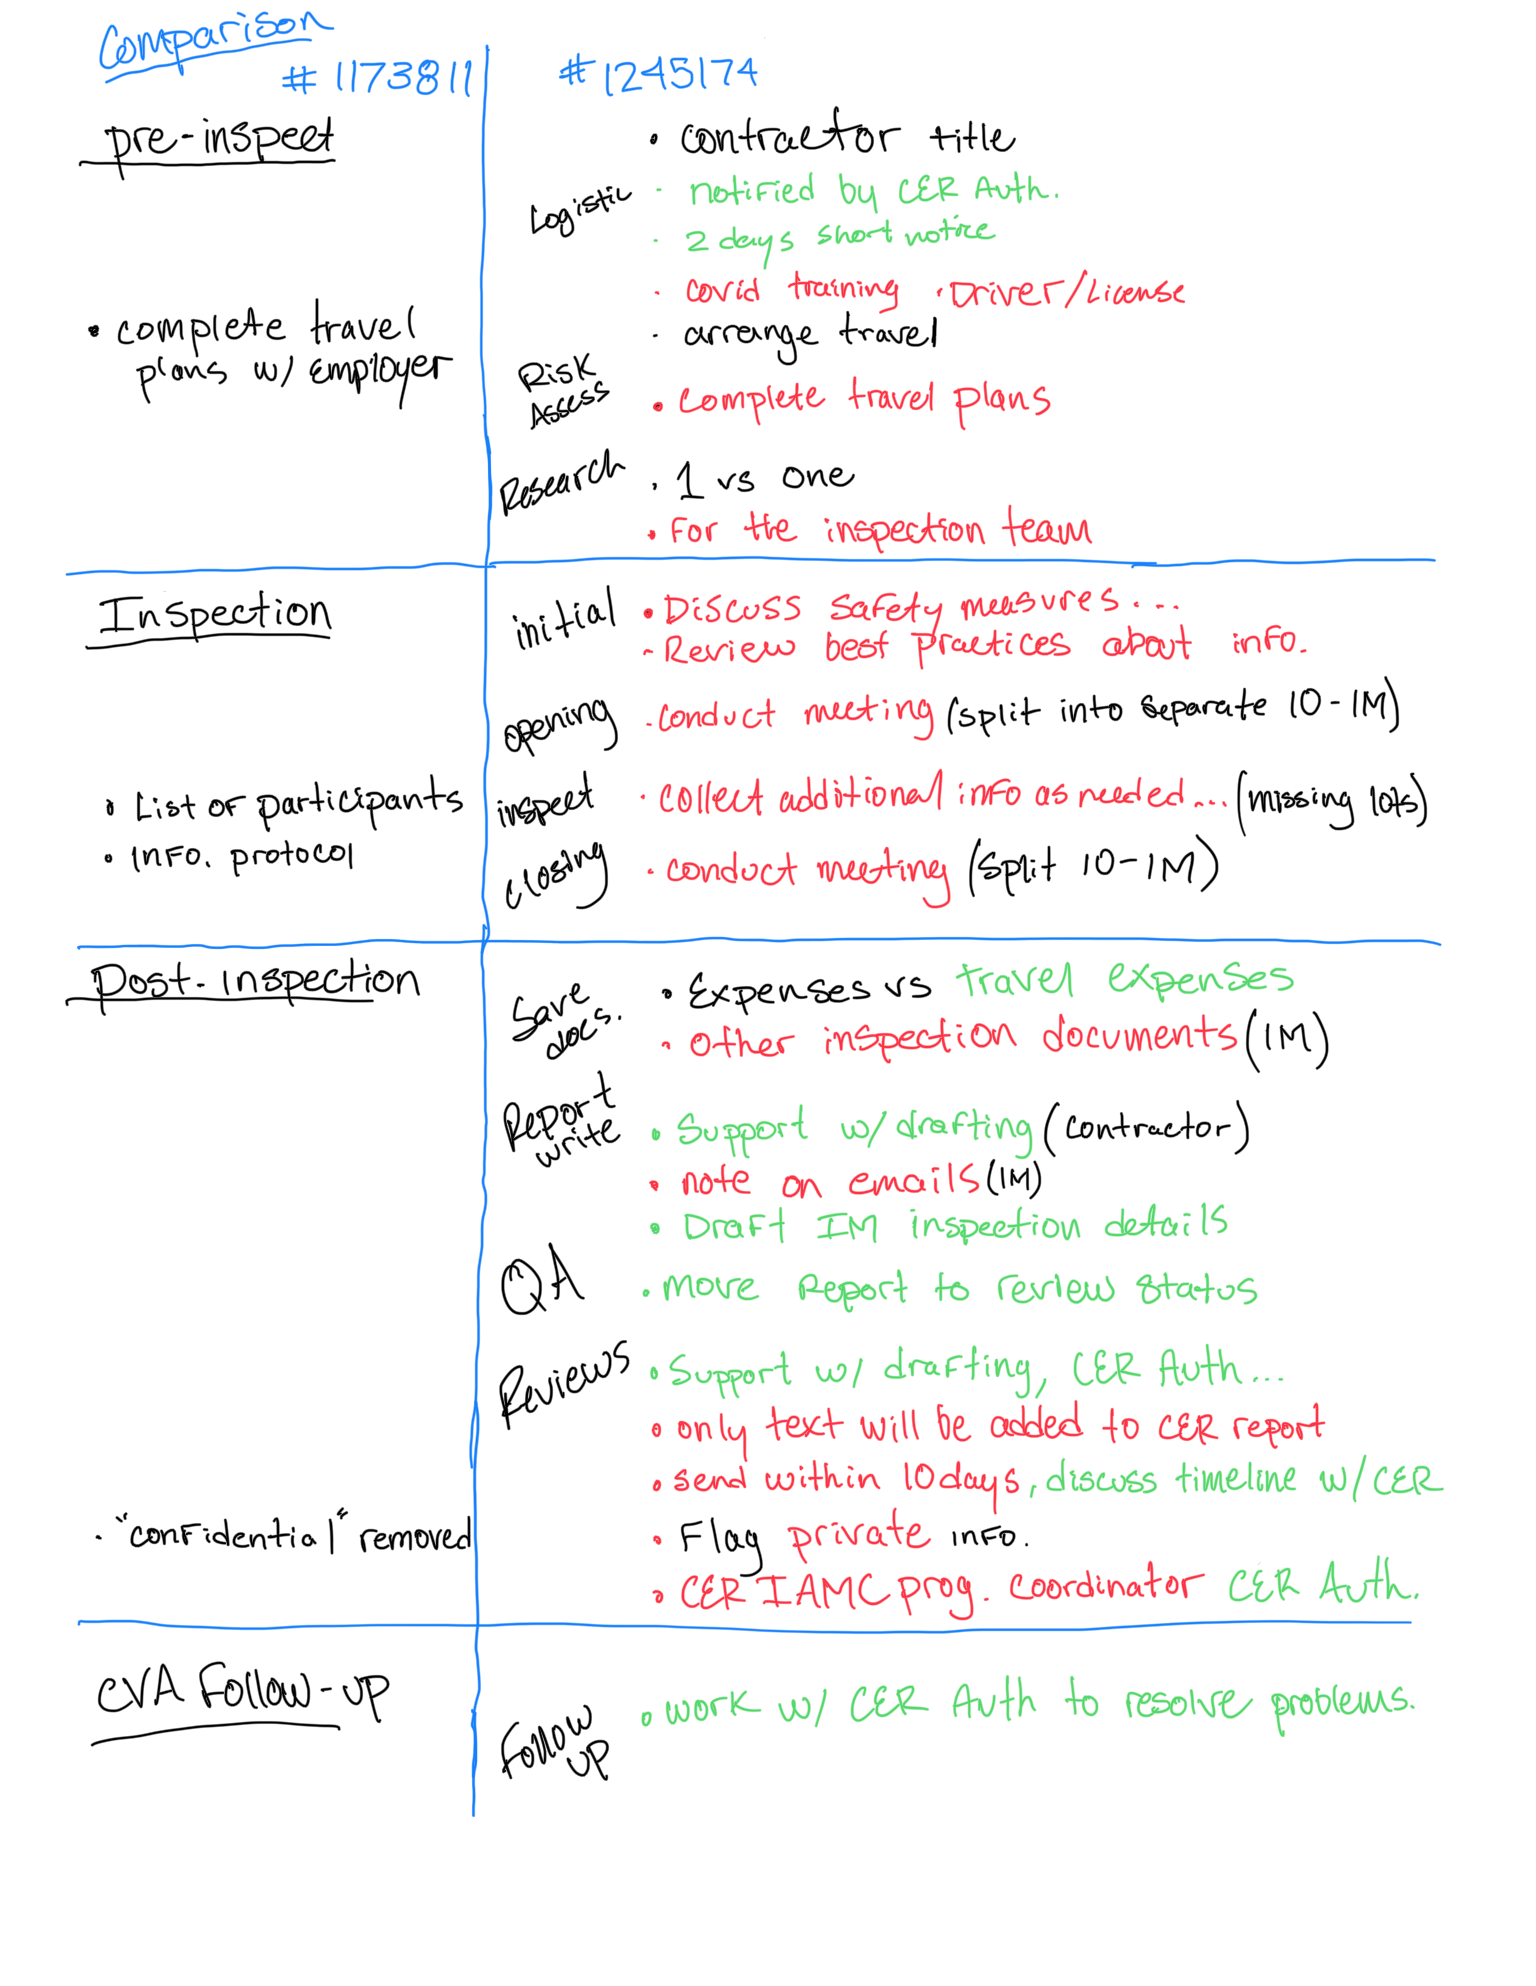 Comparison
# 1173811
# 1245174
pre-inspect
• contractor title
Logistic
· notified by CER Auth.
· 2 days short notice
· covid training · Driver/License
• complete travel
plans w/ employer
· arrange travel
Risk
Assess
• complete travel plans
Research
• 1 vs one
• For the inspection team
Inspection
initial
• Discuss safety measures...
- Review best practices about info.
opening
· conduct meeting (split into separate IO - IM)
• List of participants
• info. protocol
inspect
· collect additional info as needed... (missing lots)
closing
· conduct meeting (split IO - IM)
Post-inspection
Save
docs.
• Expenses vs travel expenses
• Other inspection documents (IM)
Report
write
• Support w/ drafting (contractor)
• note on emails (IM)
• Draft IM inspection details
QA
• move Report to review status
Reviews
• Support w/ drafting, CER Auth...
• only text will be added to CER report
• send within 10 days, discuss timeline w/ CER
• "confidential" removed
• Flag private info.
• CER IAMC prog. coordinator CER Auth.
CVA Follow-up
Follow
up
• work w/ CER Auth to resolve problems.